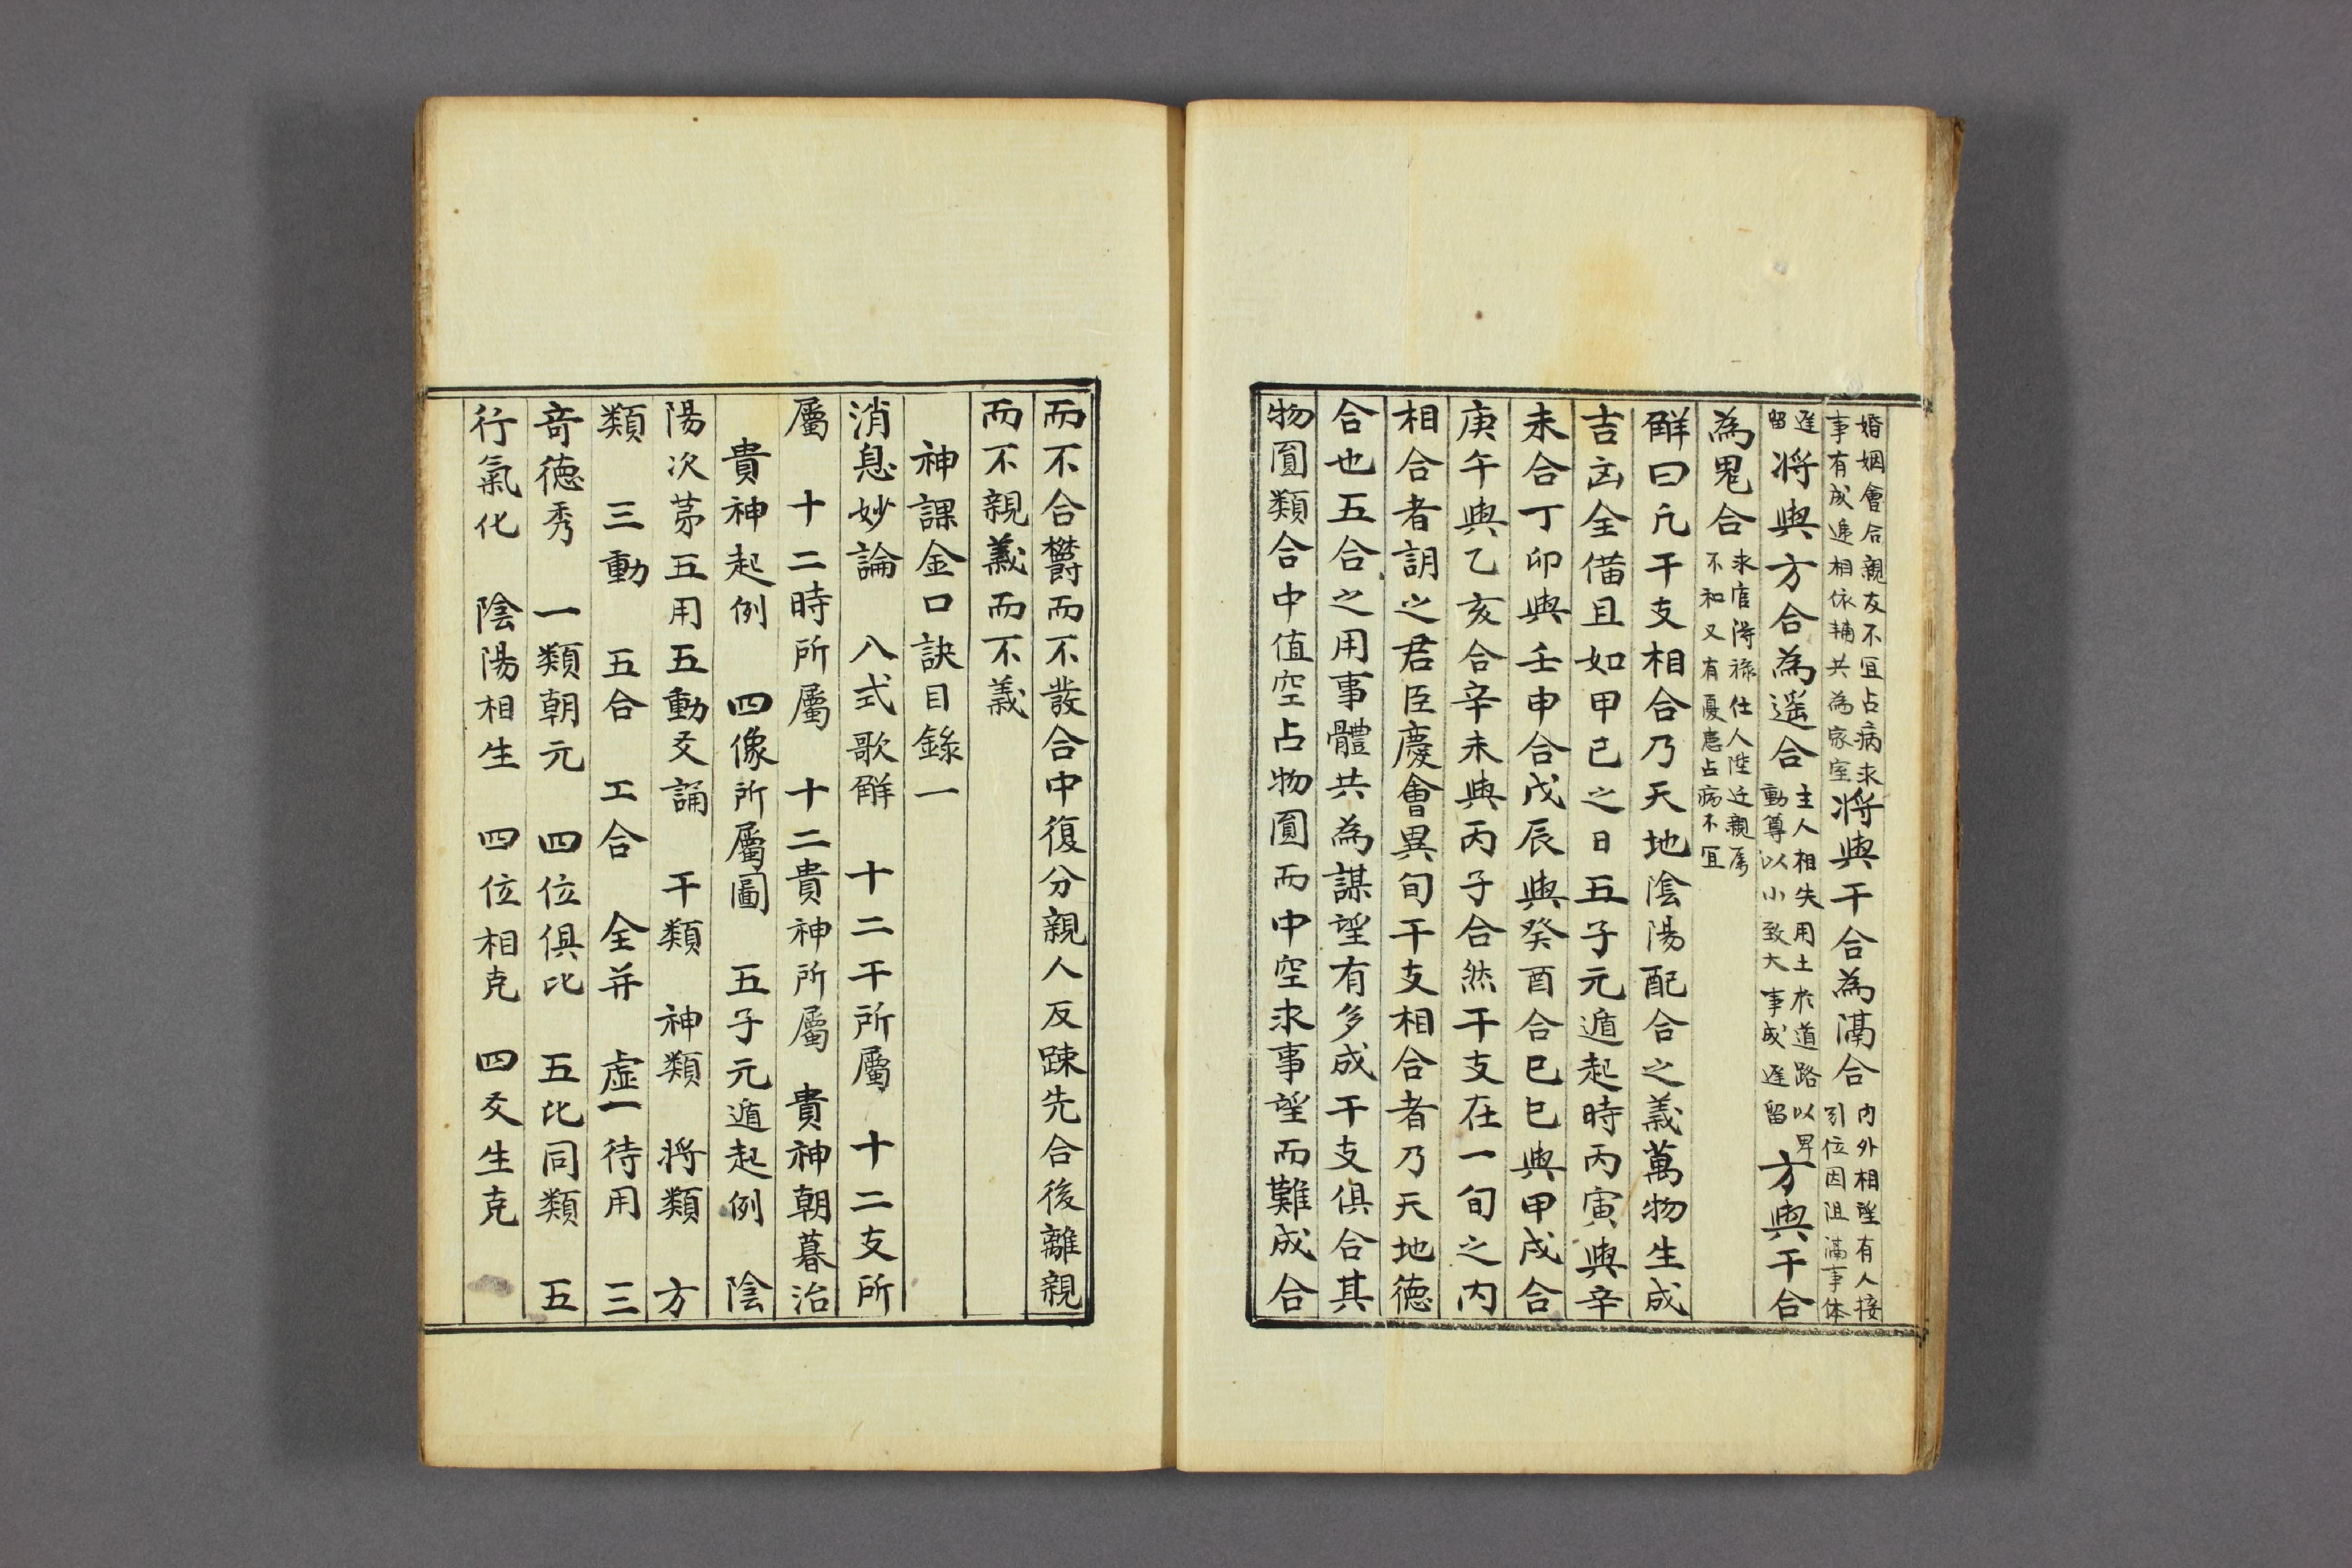 婚姻會合親友不宜占病求事有成進相依輔共為家室將與干合為滆合內外相望有人接引位因沮滆事体
遅留將與方合為遥合主人相失用土於道路以卑動尊以小致大事成遅留方與干合
為鬼合求官得祿仕人陞迁親属不和又有憂患占病不宜
觧曰凢干支相合乃天地陰陽配合之義萬物生成
吉凶全備且如甲己之日五子元遁起時丙寅與辛
未合丁卯與壬申合戊辰與癸酉合己巳與甲戌合
庚午與乙亥合辛未與丙子合然干支在一旬之內
相合者謂之君臣慶會異旬干支相合者乃天地德
合也五合之用事體共為謀望有多成干支俱合其
物圓類合中值空占物圓而中空求事望而難成合
而不合欝而不發合中復分親人反踈先合後離親
而不親義而不義
神課金口訣目錄一
消息妙論 八式歌觧 十二干所屬 十二支所
屬 十二時所屬 十二貴神所屬 貴神朝暮治
貴神起例 四像所屬圖 五子元遁起例 陰
陽次苐五用五動爻誦 干類 神類 将類 方
類 三動 五合 工合 全并 虛一待用 三
竒德秀 一類朝元 四位俱比 五比同類 五
行氣化 陰陽相生 四位相克 四爻生克